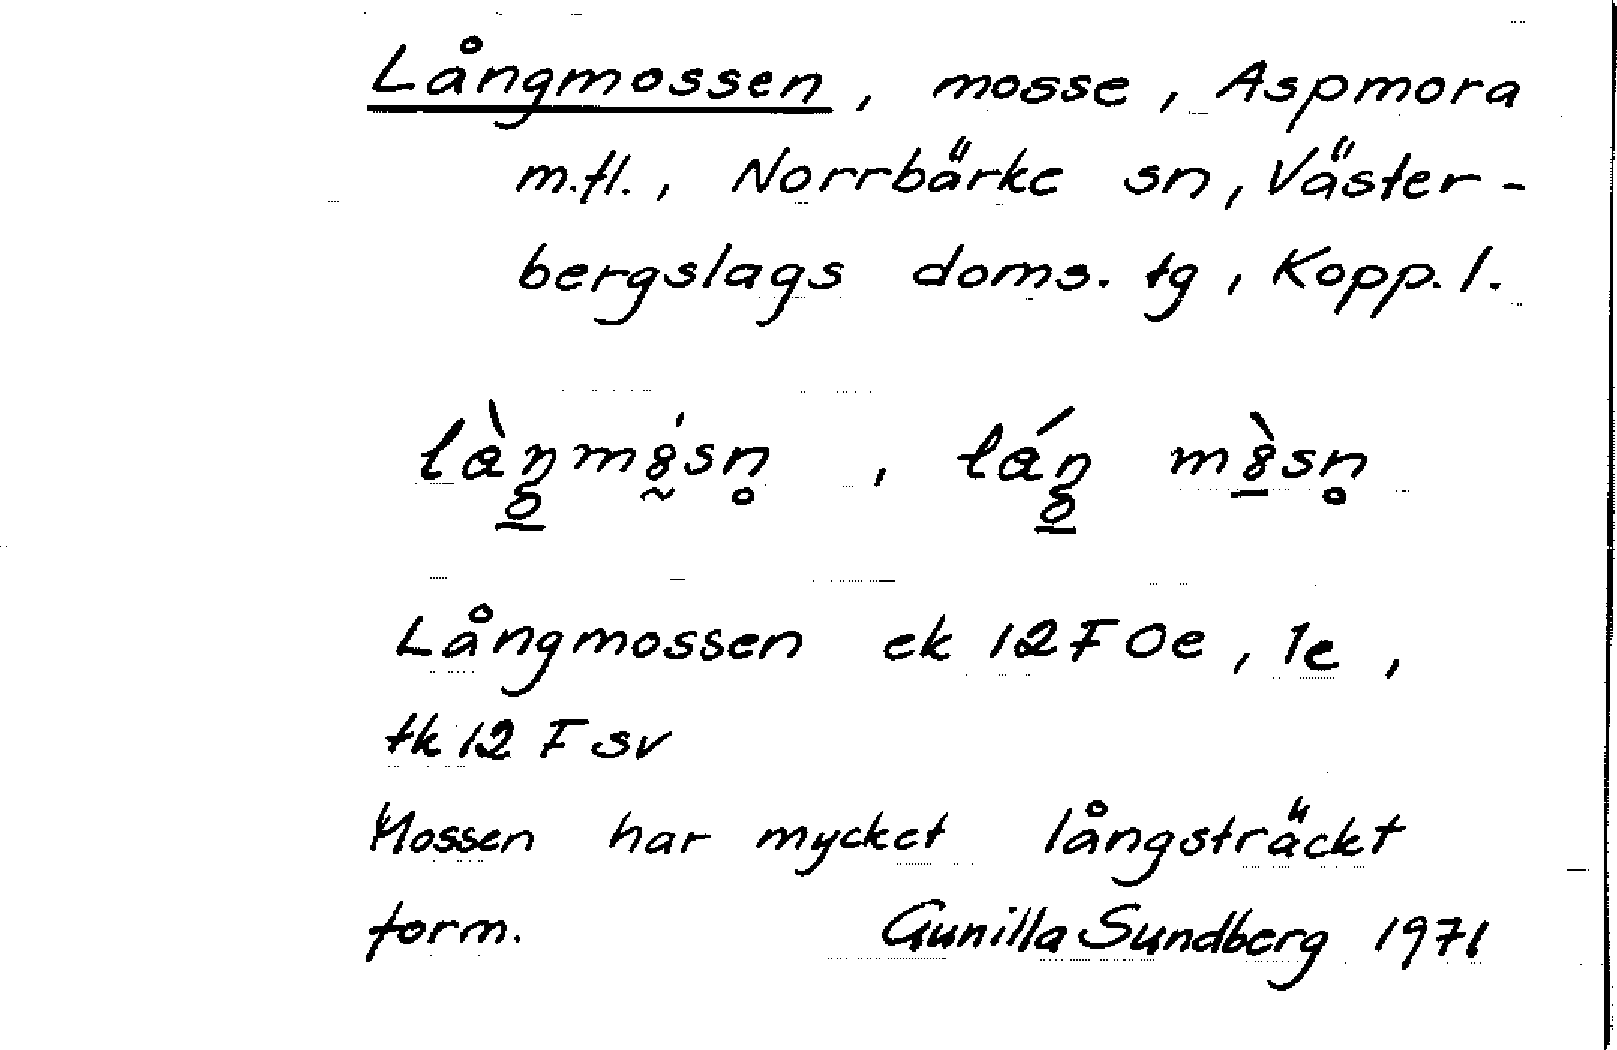 Långmossen, mosse, Aspmora
m.fl., Norrbärke sn, Väster-
bergslags doms. tg, Kopp. l.
Långmossen ek 12F0e, 1e,
tk 12 F sv
Mossen har mycket långsträckt
form. Gunilla Sundberg 1971